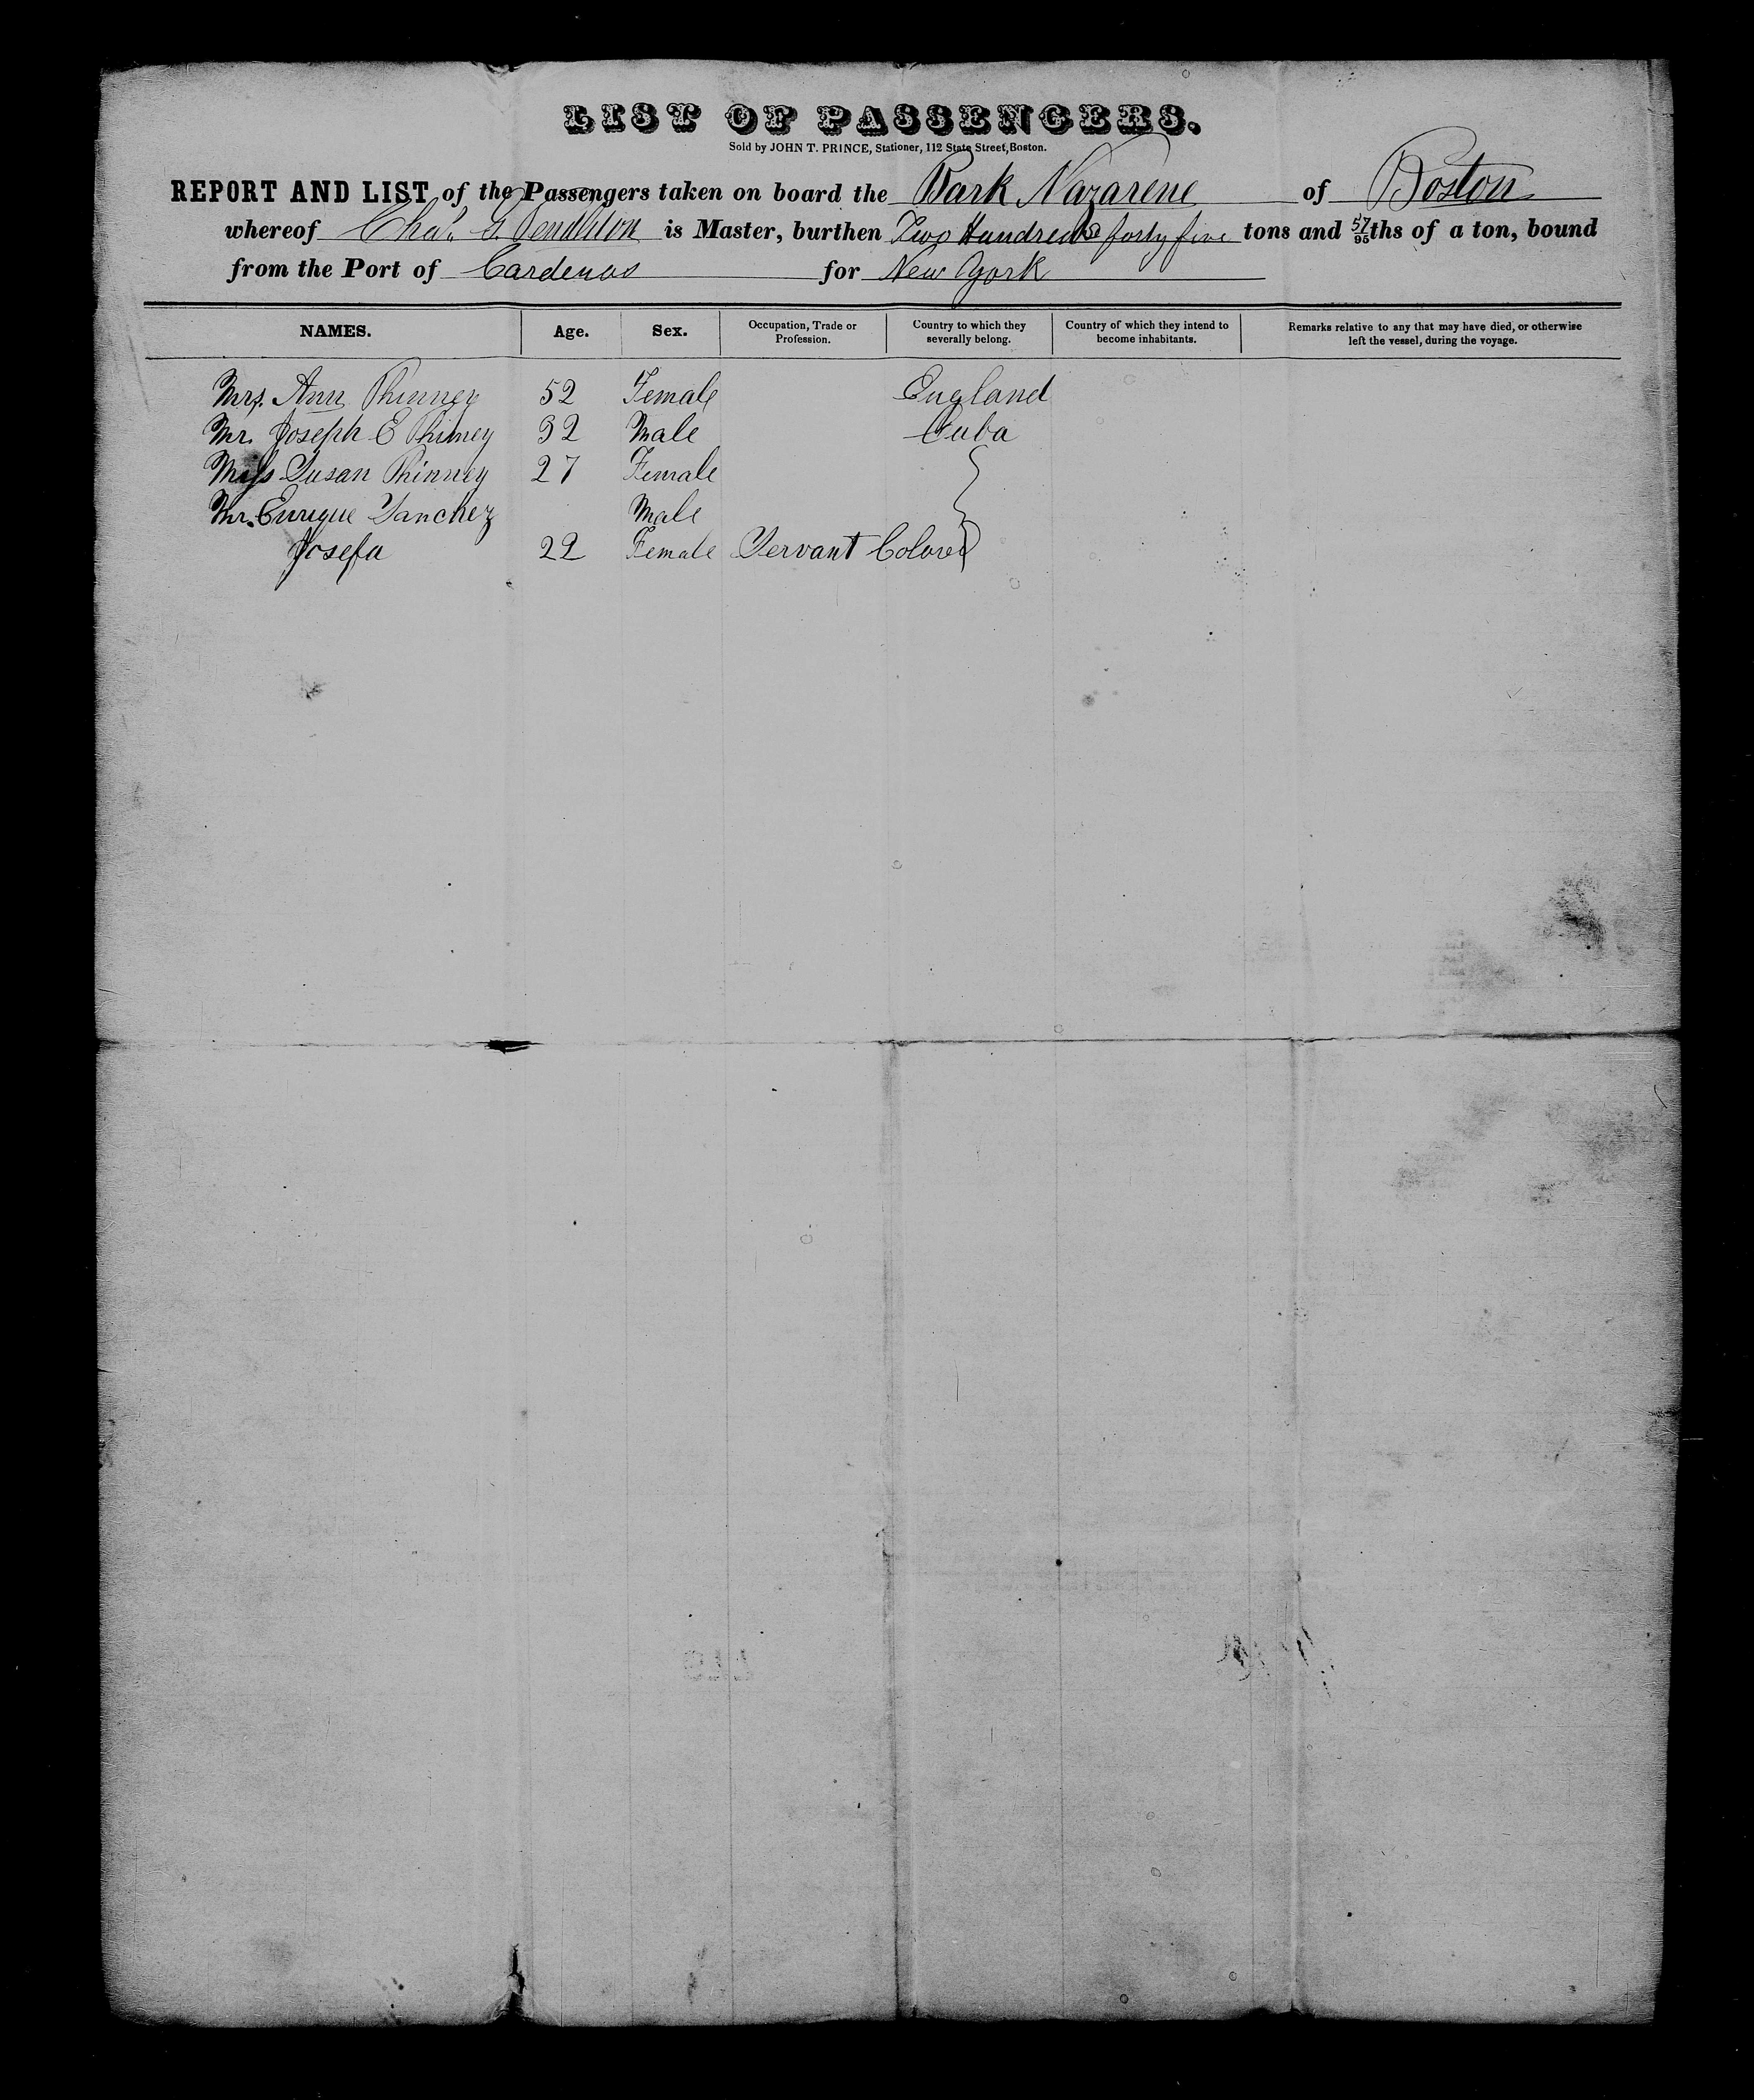 LIST OF PASSENGERS.
Sold by JOHN T. PRINCE, Stationer, 112 State Street, Boston.
REPORT AND LIST of the Passengers taken on board the Bark Nazarene of Boston
whereof Chas. G. Pendleton is Master, burthen Two Hundred & forty five tons and 57/95ths of a ton, bound
from the Port of Cardenas for New York
NAMES. Age. Sex. Occupation, Trade or Profession. Country to which they severally belong. Country of which they intend to become inhabitants. Remarks relative to any that may have died, or otherwise left the vessel, during the voyage.
Mrs. Ann Phinney 52 Female England
Mr. Joseph E Phinney 32 Male Cuba
Miss Susan Phinney 27 Female
Mr. Enrique Sanchez Male
Josefa 22 Female Servant Colored